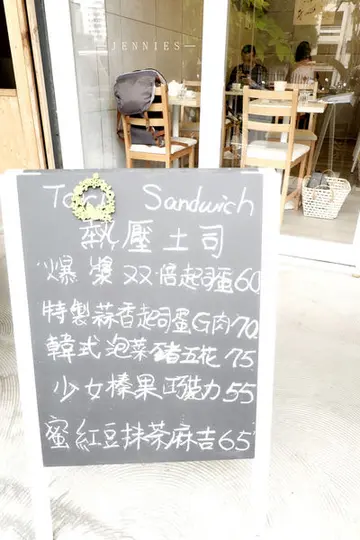 —JENNIES—
Tori Sandwich
熱壓土司
爆漿双倍起司蛋60
特製蒜香起司蛋G肉70
韓式泡菜豬五花75
少女榛果巧能力55
蜜紅豆抹茶麻吉65